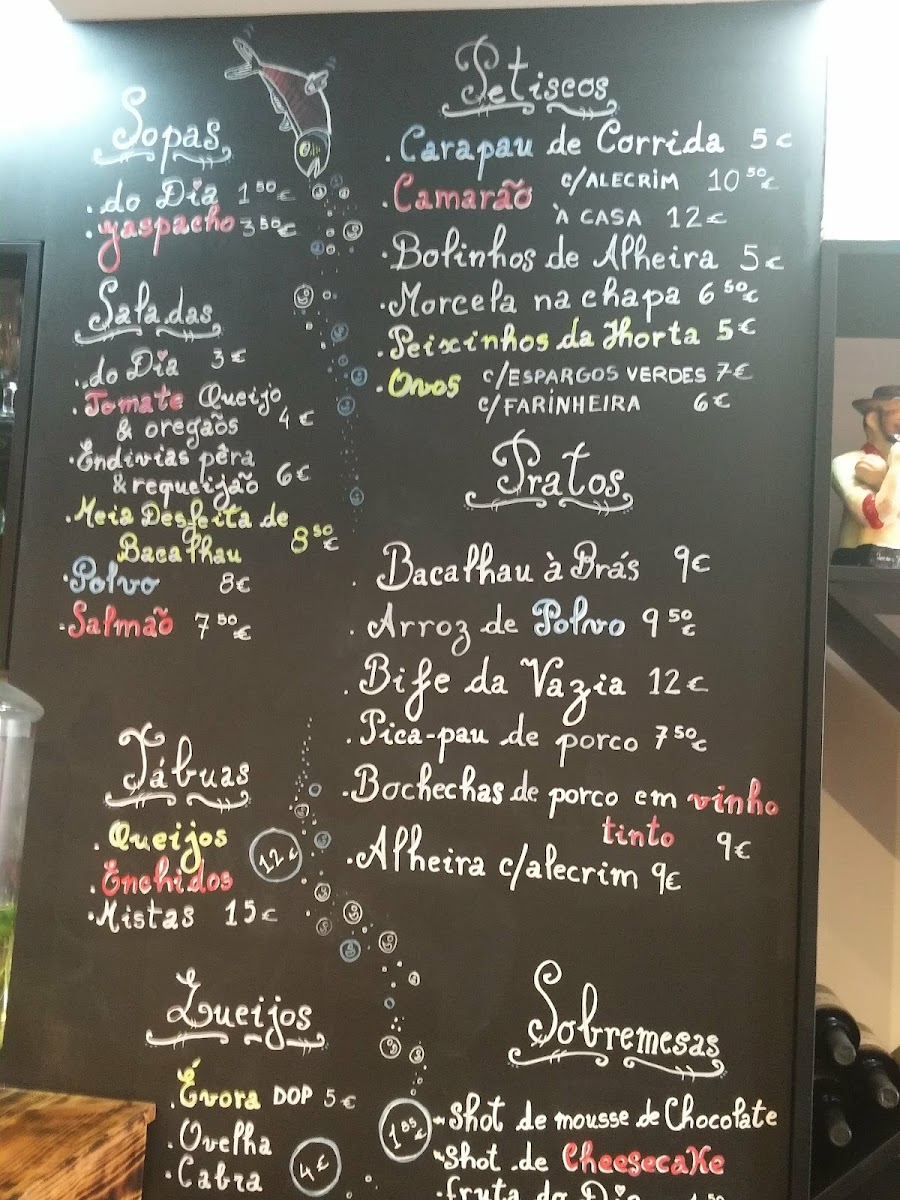 Sopas
.do Dia 1⁵⁰€
.gaspacho 3⁵⁰€
Saladas
.do Dia 3€
.Tomate Queijo
& oregãos 4€
.Endivias pêra
& requeijão 6€
.Meia Desfeita de
Bacalhau 8⁵⁰€
.Polvo 8€
.Salmão 7⁵⁰€
Tábuas
.Queijos
.Enchidos
12€
.Mistas 15€
Queijos
.Évora DOP 5€
.Ovelha
.Cabra
4€
Petiscos
.Carapau de Corrida 5€
.Camarão c/ALECRIM 10⁵⁰€
À CASA 12€
.Bolinhos de Alheira 5€
.Morcela na chapa 6⁵⁰€
.Peixinhos da Horta 5€
.Ovos c/ESPARGOS VERDES 7€
c/FARINHEIRA 6€
Pratos
.Bacalhau à Brás 9€
.Arroz de Polvo 9⁵⁰€
.Bife da Vazia 12€
.Pica-pau de porco 7⁵⁰€
.Bochechas de porco em vinho
tinto 9€
.Alheira c/alecrim 9€
Sobremesas
Shot de mousse de Chocolate
Shot de Cheesecake
fruta do Dia